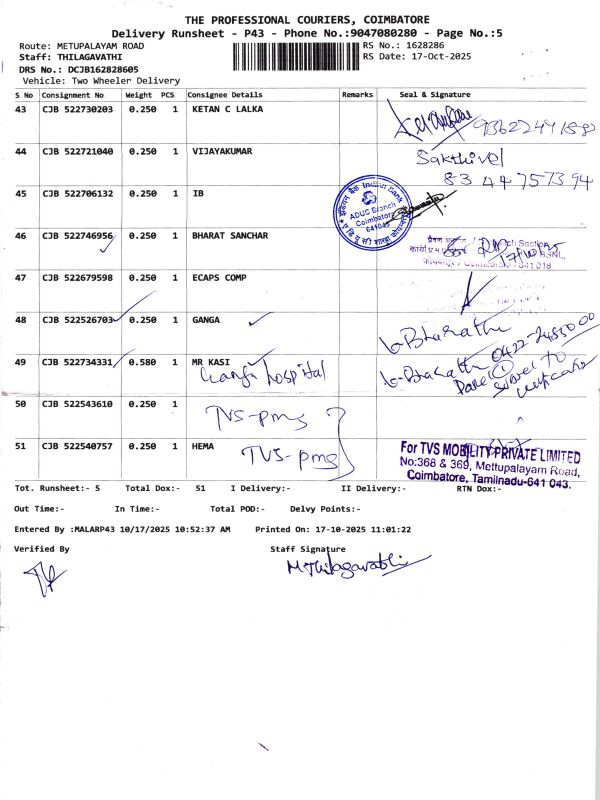 THE PROFESSIONAL COURIERS, COIMBATORE
Delivery Runsheet - P43 - Phone No.:9047080280 - Page No.:5
Route: METUPALAYAM ROAD RS No.: 1628286
Staff: THILAGAVATHI RS Date: 17-Oct-2025
DRS No.: DCJB162828605
Vehicle: Two Wheeler Delivery
S No Consignment No Weight PCS Consignee Details Remarks Seal & Signature
43 CJB 522730203 0.250 1 KETAN C LALKA
44 CJB 522721040 0.250 1 VIJAYAKUMAR Sakthivel
8344757394
45 CJB 522706132 0.250 1 IB
इंडियन बैंक Indian Bank
ADUC Branch
Coimbatore
641045
46 CJB 522746956 0.250 1 BHARAT SANCHAR
17/10/25
47 CJB 522679598 0.250 1 ECAPS COMP
48 CJB 522526703 0.250 1 GANGA G-Bharathi
0422-2485000
49 CJB 522734331 0.580 1 MR KASI G-Bharathi
Ganga hospital
50 CJB 522543610 0.250 1 TVS-pmg
51 CJB 522540757 0.250 1 HEMA TVS-pmg
For TVS MOBILITY PRIVATE LIMITED
No:368 & 369, Mettupalayam Road,
Coimbatore, Tamilnadu-641 043.
Tot. Runsheet:- 5 Total Dox:- 51 I Delivery:- II Delivery:- RTN Dox:-
Out Time:- In Time:- Total POD:- Delvy Points:-
Entered By :MALARP43 10/17/2025 10:52:37 AM Printed On: 17-10-2025 11:01:22
Verified By Staff Signature
M.Thilagavathi